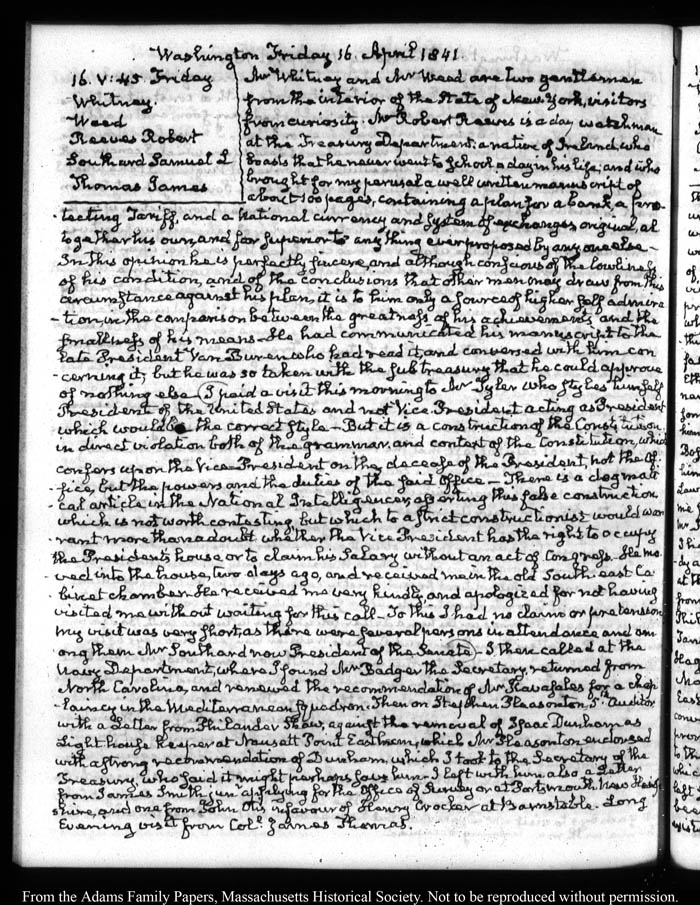 Washington Friday 16. April 1841.
16. V:45. Friday
Whitney.
Weed
Reeves Robert
Southard Samuel L
Thomas James
Mr Whitney and Mr Weed are two gentlemen
from the interior of the State of New-York, visitors
from curiosity. Mr Robert Reeves is a day watchman
at the Treasury Department, a native of Ireland, who
boasts that he never went to School a day in his life, and who
brought for my perusal a well written manuscript of
about 100 pages, containing a plan for a bank, a pro-
-tecting Tariff, and a National currency and system of exchanges, original, al
together his own, and far superior to any thing ever proposed by any one else—
In this opinion he is perfectly sincere, and although conscious of the lowliness
of his condition, and of the conclusions that other men may draw from this
circumstance against his plan, it is to him only a source of higher self admira
-tion, in the comparison between the greatness of his achievement, and the
smallness of his means— He had communicated his manuscript to the
late President Van Buren who had read it, and conversed with him con
-cerning it; but he was so taken with the sub treasury that he could approve
of nothing else. I paid a visit this morning to Mr Tyler who styles himself
President of the United States and not Vice-President acting as President
which would be the correct style— But it is a construction of the Constitution
in direct violation both of the grammar, and context of the Constitution, which
confers upon the Vice-President on the decease of the President, not the Of-
-fice, but the powers and the duties of the said Office— There is a dogmati
-cal article in the National Intelligencer, asserting this false construction,
which is not worth contesting, but which to a strict constructionist would war
-rant more than a doubt whether the Vice President has the right to occupy
the President's house or to claim his Salary without an act of Congress. He mo-
-ved into the house, two days ago, and received me in the old South-east Ca-
-binet chamber. He received me very kindly and apologized for not having
visited me without waiting for this call— To this I had no claim or pretension
My visit was very short, as there were several persons in attendance and am
ong them Mr Southard now President of the Senate— I then called at the
Navy Department, where I found Mr Badger the Secretary, returned from
North Carolina, and renewed the recommendation of Mr for a chap
-laincy in the Mediterranean squadron. Then on Stephen Pleasonton, 5th Auditor
with a Letter from Philander Shaw, against the removal of Isaac Dunham as
Light house keeper at Nausett Point Eastham, which Mr Pleasonton endorsed
with a strong recommendation of Dunham, which I took to the Secretary of the
Treasury, who said it might perhaps save him. I left with him also a Letter
from James Smith jun applying for the Office of Surveyor at Portsmouth New Hamp-
shire, and one from John Otis in favour of Henry Crocker at Barnstable. Long
Evening visit from Col. James Thomas.
From the Adams Family Papers, Massachusetts Historical Society. Not to be reproduced without permission.